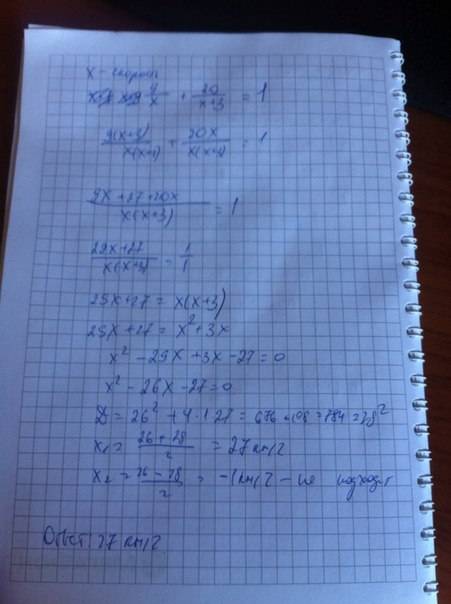 x - скорость
9/x + 20/(x+3) = 1
9(x+3)/x(x+3) + 20x/x(x+3) = 1
9x+27+20x/x(x+3) = 1
29x+27/x(x+3) = 1/1
29x+27 = x(x+3)
29x+27 = x²+3x
x² - 29x + 3x - 27 = 0
x² - 26x - 27 = 0
D = 26² + 4·1·27 = 676+108 = 784 = 28²
x₁ = 26+28/2 = 27 км/ч
x₂ = 26-28/2 = -1 км/ч - не подходит
Ответ: 27 км/ч